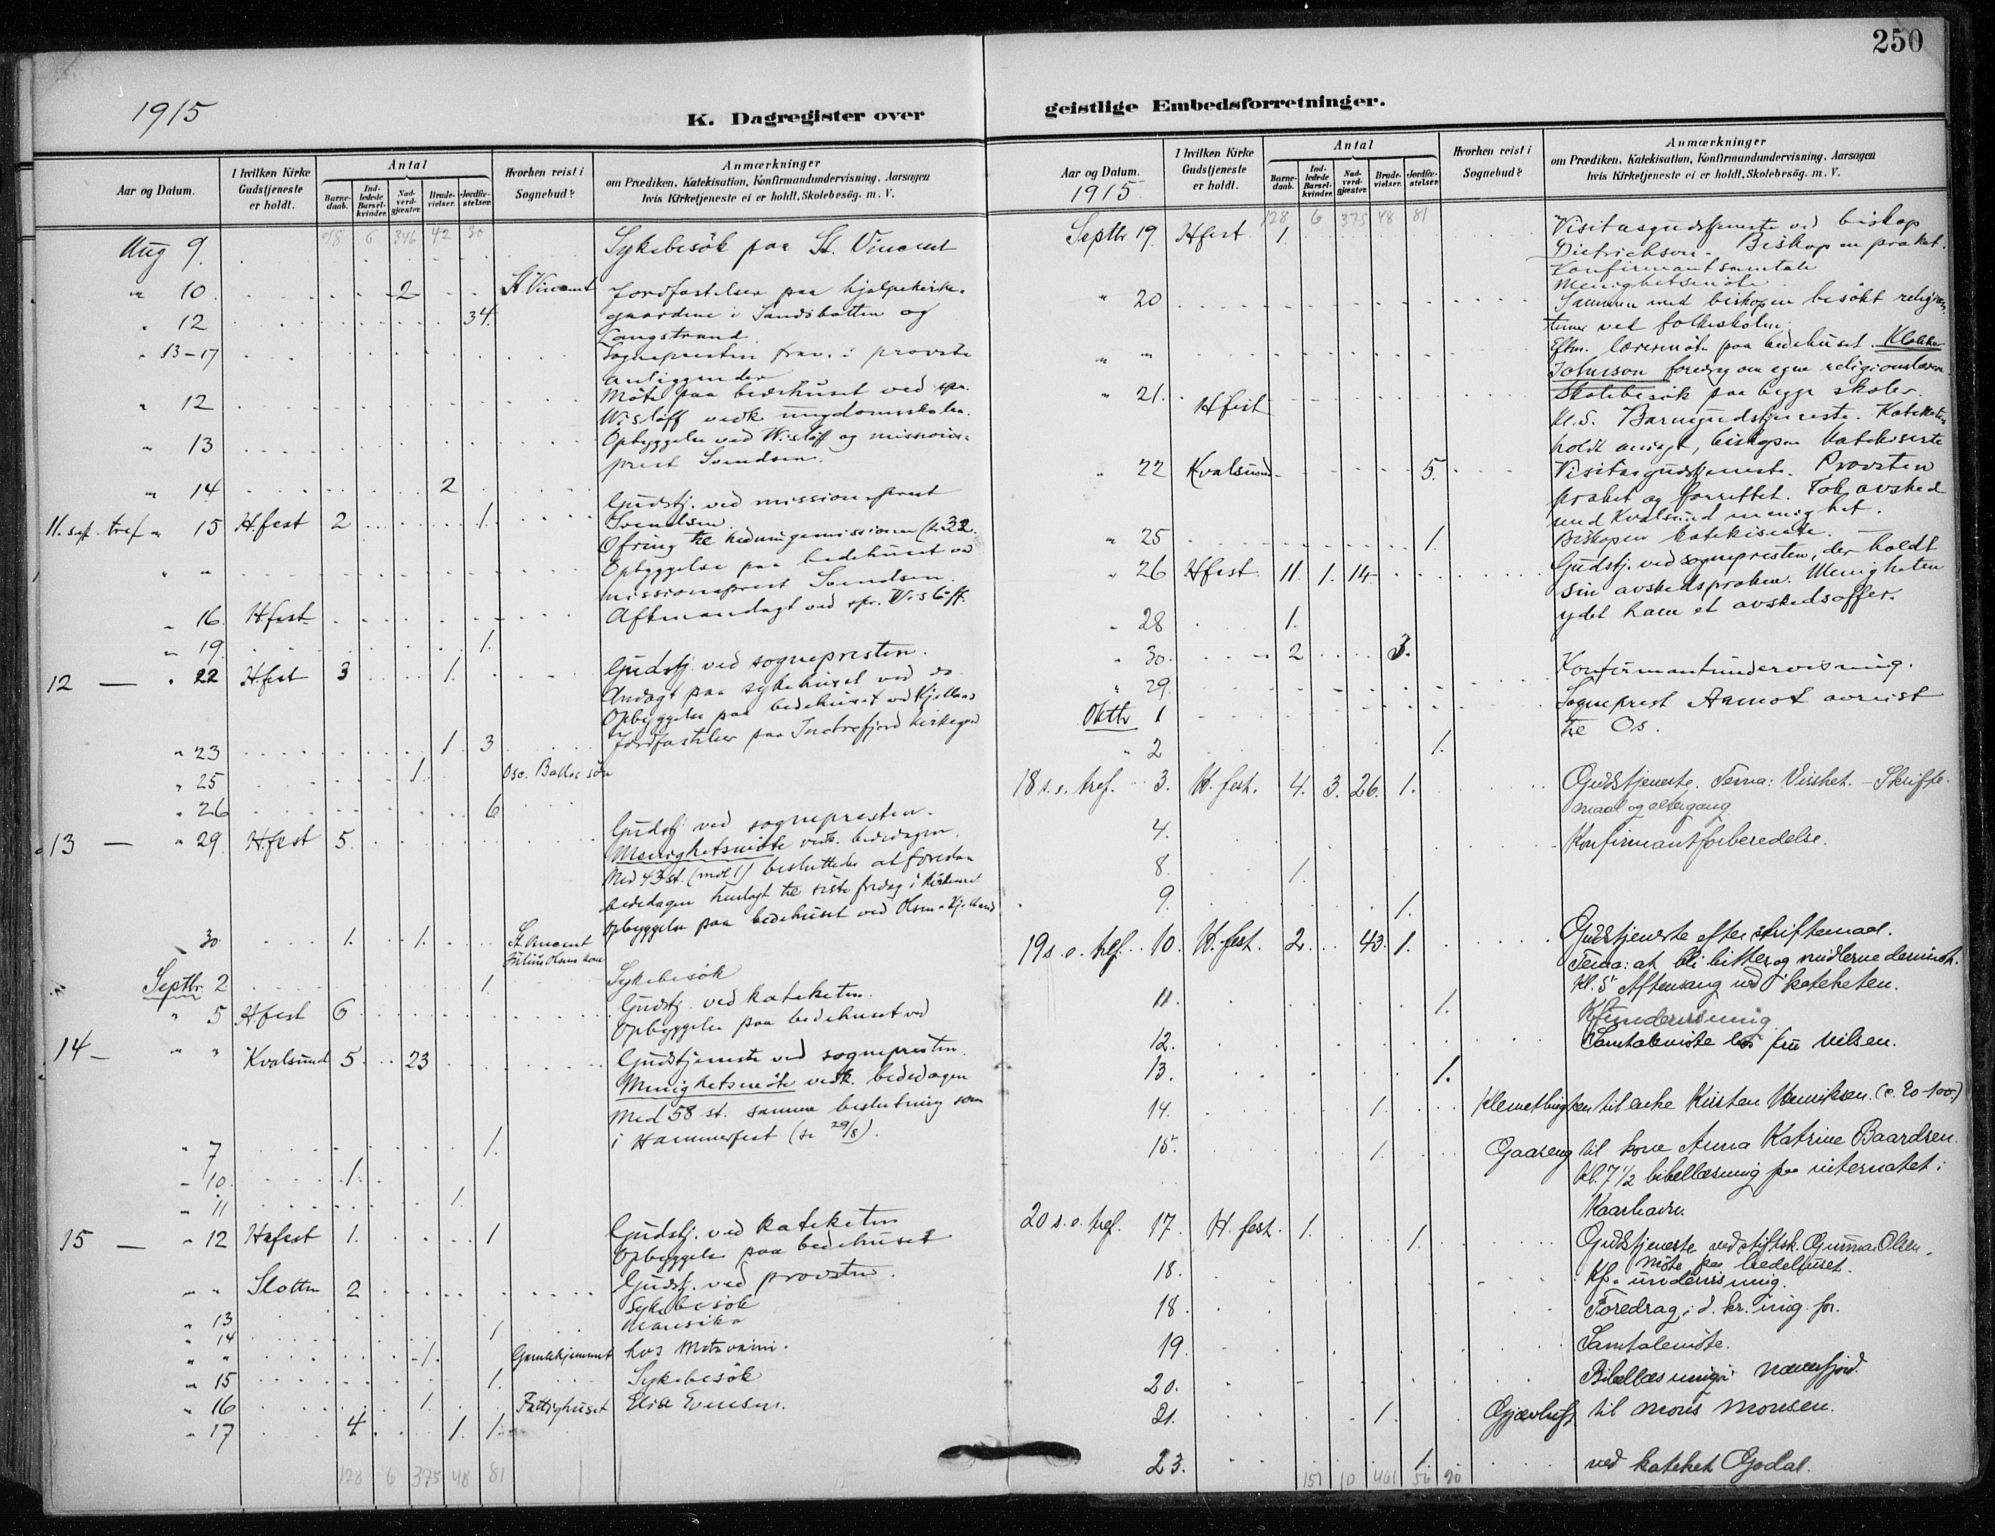 250
1915
K. Dagregister over
geistlige Embedsforretninger.
Aar og Datum.
I hvilken Kirke Gudstjeneste er holdt.
Antal
Barne-daab.
Ind-ledede Barsel-kvinder.
Nad-verd-gjæster.
Brude-vielser.
Jordfæ-stelser.
Hvorhen reist i Sognebud?
Anmærkninger
om Prædiken, Katekisation, Konfirmandundervisning, Aarsagen
hvis Kirketjeneste ei er holdt, Skolebesøg. m. V.
6 346 42 30
Aug 9. Sykebesök paa St. Vincent
" 10 2 St Vincent Jordfæstelser paa hjælpekirke-
" 12 34. gaardene i Sandsbotten og
Langstrand.
" 13-17 Sognepresten frav. i provste
anliggender
" 12 Möte paa bedehuset ved spr.
Wislöff vedk. ungdomsskolen.
" 13 Opbyggelse ved Wislöff og missions-
prest Svendsen.
" 14 2
Gudstj. ved missionsprest
11. sep. tref " 15 H.fest 2 1. Svendsen.
Ofring til hedningemissionen (kr 32.
" " Opbyggelse paa bedehuset ved
missionsprest Svendsen.
" 16. H.fest Aftenandagt ved spr. Wislöff.
" 19. 1.
12 — " 22 H.fest 3 1. Gudstj. ved sognepresten.
Andagt paa sykehuset ved do
Opbyggelse paa bedehuset ved Kjelland
" 23 1 3 Jordfæstelser paa Indrefjord kirkegd
" 25 1. Osc. Ballos sön
" 26 6
13 — " 29 H.fest 5. Gudstj. ved sognepresten.
Menighetsmöte vedk. bededagen.
Med 43 st. (mot 1) besluttedes at foreslaa
bededagen henlagt til siste fredag i kirkeaaret
Opbyggelse paa bedehuset ved Olsen & Kjelland
" 30 1. 1. St. Vincent
Julius Olsens kone
Septbr. 2 1 Sykebesök
" 5 H.fest 6 Gudstj. ved kateketen.
Opbyggelse paa bedehuset ved
14 — " " Kvalsund 5. 23 Gudstjeneste ved sognepresten.
Menighetsmöte vedk. bededagen
Med 58 st. samme beslutning som
i Hammerfest (se 29/8).
" 7 1.
" 10. 1.
" 11 1
15 — " 12 H.fest 1. 1 Gudstj. ved kateketen
Opbyggelse paa bedehuset
" " Slotten 2 Gudstj. ved provsten.
" 13 Sykebesök
" 14 1
" " 1. Gamlehjemmet hos
" 15 1. Sykebesök
" 16 1. Fattighuset Elise Evensen.
" 17 4 1. 1.
128 6 375 48 81
Aar og Datum.
1915
I hvilken Kirke Gudstjeneste er holdt.
Antal
Barne-daab.
Ind-ledede Barsel-kvinder.
Nad-verd-gjæster.
Brude-vielser.
Jordfæ-stelser.
Hvorhen reist i Sognebud?
Anmærkninger
om Prædiken, Katekisation, Konfirmandundervisning, Aarsagen
hvis Kirketjeneste ei er holdt, Skolebesög. m. V.
128 6 375 48 81
Septbr 19. Hfest 1. Visitasgudstjeneste ved biskop
Dietrichson. Biskopen præket.
Konfirmantsamtale
Menighetsmöte.
" 20 Sammen med biskopen besökt religions-
timer ved folkeskolen.
" " Eftm. lærermöte paa bedehuset. Klokker
Johnsson foredrag om egne religionslærer.
" 21. Hfest Skolebesök paa begge skoler
Kl. 5. Barnegudstjeneste. Kateketen
holdt andagt, biskopen katekiserte
" 22 Kvalsund 5. Visitasgudstjeneste. Provsten
præket og forrettet. Tok avsked
med Kvalsund menighet.
" 25 1. Biskopen katekiserte.
" 26 Hfest. 11. 1. 14 Gudstj. ved sognepresten, der holdt
sin avskedspræken. Menigheten
ydet ham et avskedsoffer.
" 28 1.
" 30. 2 3.
" 29. Konfirmantundervisning.
Oktbr 1 Sogneprest Aamot avreist
til Os.
" 2 1.
18 s. e. tref. 3. H. fest. 4. 3. 26. 1. Gudstjeneste. Tema: Visshet. - Skrifte-
maal og altergang
4. Konfirmantforberedelse.
8. 1.
9. 1.
19 s. e. tref. 10. H. fest. 2. 43. 1. Gudstjeneste efter skriftemaal.
Tema: at bli bitter og midlerne derimot.
Kl. 5 Aftensang ved kateketen.
11. 1. Kf. undervisning
12. Samtalemöte hos fru Nilsen.
13. 1.
14. 1. til enke Kirsten Henriksen.
15. 1. Gaaseng til kone Anna Katrine Baardsen.
Kl. 7 1/2 bibellæsning paa internatet i
Kaarhavn
20 s. e. tref. 17. H. fest. 1. 1. Gudstjeneste ved stiftsk. Gunnar Olsen.
Möte paa bedehuset.
18. Kf. undervisning.
18. Foredrag i d. kr. ung. for.
19. Samtalemöte.
20. Bibellæsning i
21. 1. til Mons Monsen.
23. 1. ved kateket Godal.
151 10 461 56 90